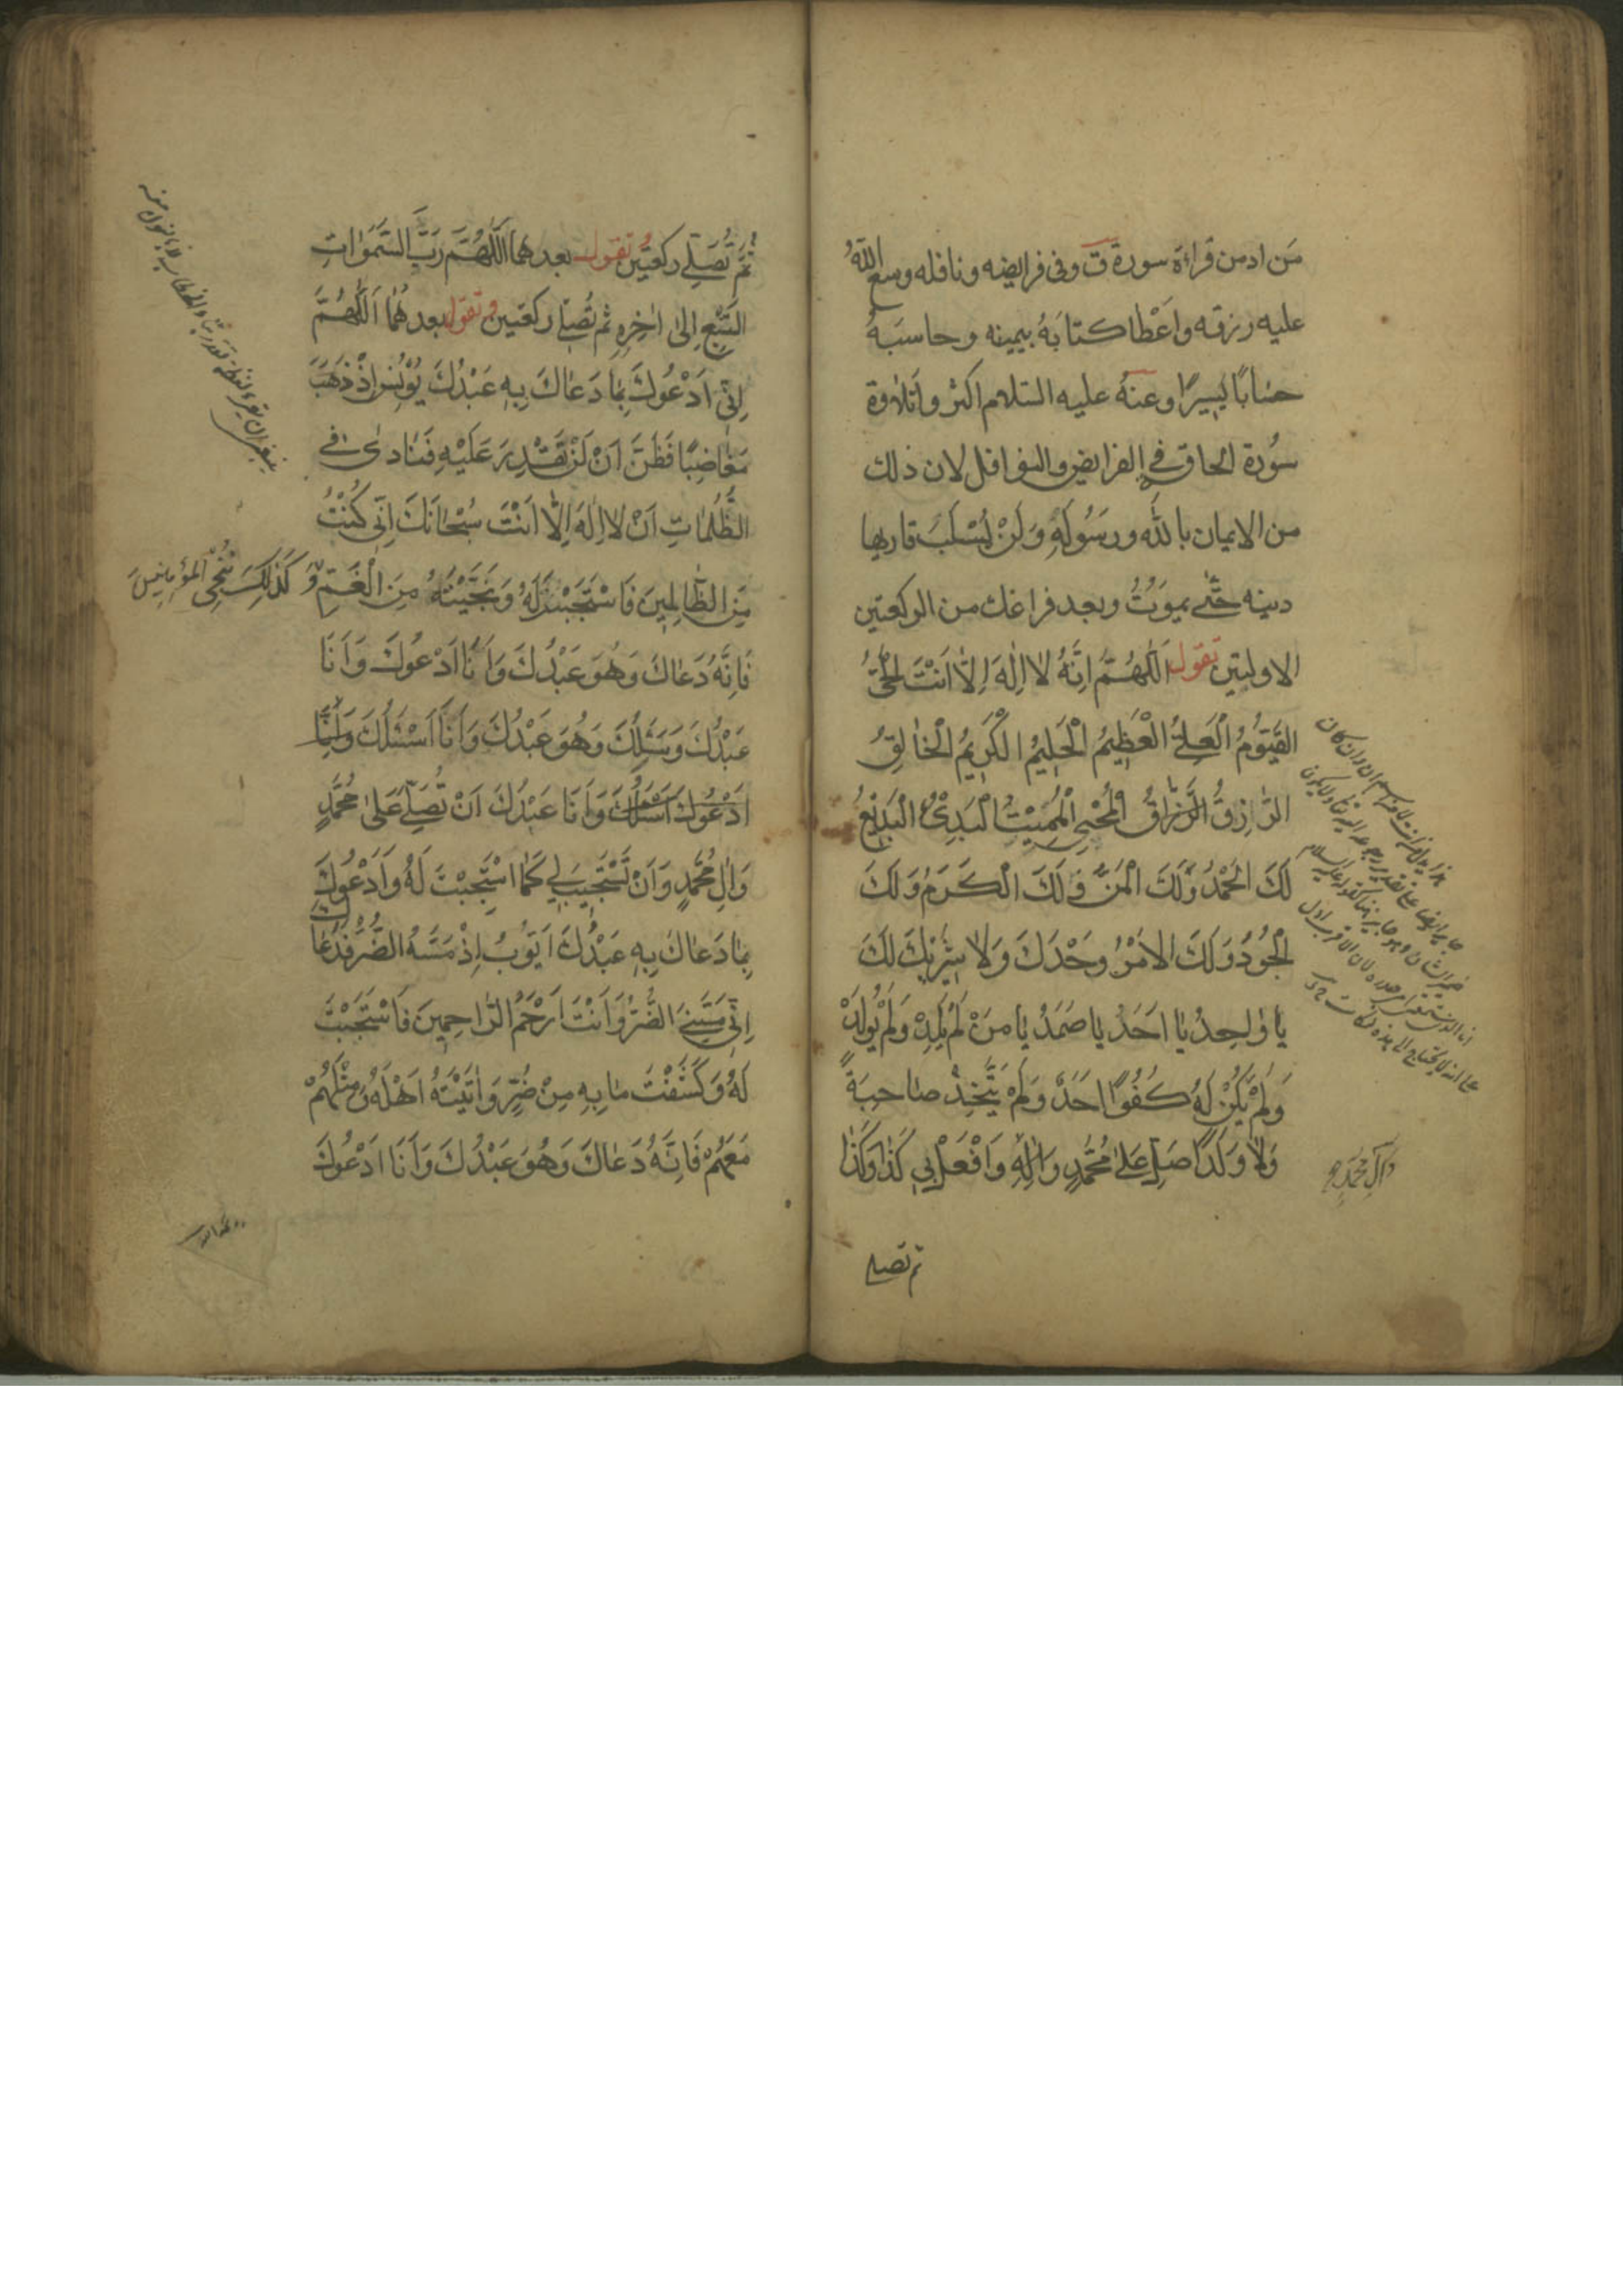 مَن ادمن قراءة سورة ق وفى فرايضه ونافله وسع اللهُ
عليه رزقه واعْطا كتابَهُ بيمينه وحاسبَهُ
حسابًا يسيرًا وعنهُ عليه السلام اكثروا تلاوة
سُورة الحاقه فى الفرايض والنوافل لان ذلك
من الايمان بالله ورسُوله وَلَنْ يُسْلَبَ قاريها
دينه حَتّٰى يموتُ وبعد فراغك من الركعتين
الاوليتين تقول اَللّٰهُمَّ اِنَّهُ لا اِلٰهَ اِلّا اَنْتَ الْحَىُّ
القَيّوُمُ الْعَلِىُّ الْعَظيمُ الْحَليمُ الْكَريمُ الْخالِقُ
الرّازِقُ الرَّزّاقُ الْمُحْيِى الْمُميتُ الْبَدِىْءُ الْبَديْعُ
لَكَ الْحَمْدُ وَلَكَ الْمَنُّ وَلَكَ الْكَرَمُ وَلَكَ
الْجُودُ وَلَكَ الامْرُ وَحْدَكَ وَلا شَريْكَ لَكَ
يا واحِدُ يا اَحَدُ يا صَمَدُ يا مَنْ لَمْ يَلِدْ وَلَمْ يُولَدْ
وَلَمْ يَكُنْ لَهُ كُفُوًا اَحَدٌ وَلَمْ يَتَّخِذْ صاحِبَةً
وَلا وَلَدًا صَلِّ عَلىٰ مُحَمَّدٍ وَالِهِ وَافْعَلْ بى كَذا وَكَذا
وَآلِ مُحَمَّدٍ
ثم تصلى
ثُمَّ تُصَلّى ركعتَيْن تقول بعدهما اَللّٰهُمَّ رَبَّ السَّمٰواتِ
السَّبْعِ اِلىٰ اخِرِهِ ثم تُصَلّى ركعتين وتقول بعدهُما اَللّٰهُمَّ
اِنّى اَدْعُوكَ بِما دَعاكَ بِهِ عَبْدُكَ يُوْنُسُ اِذْ ذَهَبَ
مُغاضِبًا فَظَنَّ اَنْ لَنْ تَقْدِرَ عَلَيْهِ فَنادىٰ فى
الظُّلُماتِ اَنْ لا اِلٰهَ اِلّا اَنْتَ سُبْحانَكَ اِنّى كُنْتُ
مِنَ الظّالِمينَ فَاسْتَجَبْتَ لَهُ وَنَجَّيْتَهُ مِنَ الْغَمِّ وَ كَذٰلِكَ نُنْجِى الْمُؤمِنينَ
فَاِنَّهُ دَعاكَ وَهُوَ عَبْدُكَ وَاَنَا اَدْعُوكَ وَاَنَا
عَبْدُكَ وَسَئَلَكَ وَهُوَ عَبْدُكَ وَاَنَا اَسْئَلُكَ وَاَنَا
اَدْعُوكَ اَسْئَلُكَ وَاَنَا عَبْدُكَ اَنْ تُصَلِّىَ عَلىٰ مُحَمَّدٍ
وَالِ مُحَمَّدٍ وَاَنْ تَسْتَجيبَ لى كَمَا اسْتَجَبْتَ لَهُ وَاَدْعُوكَ
بِما دَعاكَ بِهِ عَبْدُكَ اَيّوُبُ اِذْ مَسَّهُ الضُّرُّ فَدَعاكَ
اِنّى مَسَّنِىَ الضُّرُّ وَاَنْتَ اَرْحَمُ الرّاحِمينَ فَاسْتَجَبْتَ
لَهُ وَكَشَفْتَ ما بِهِ مِنْ ضُرٍّ وَاتَيْتَهُ اَهْلَهُ وَمِثْلَهُمْ
مَعَهُمْ فَاِنَّهُ دَعاكَ وَهُوَ عَبْدُكَ وَاَنَا اَدْعُوكَ